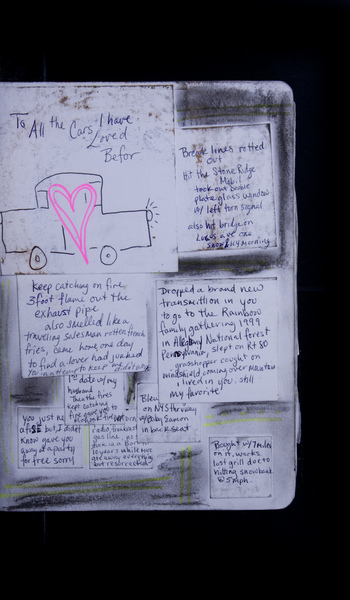 To All the Cars I have
Loved
Befor
Break lines rotted
out
Hit the Stone Ridge
Mobil
took out
plate glass window
w/ left turn signal
also hit bridge on
Lucas ave one
Morning
Keep catching on fire,
3 foot flame out the
exhaust pipe
also smelled like a
traveling salesman rotten french
fries, came home one day
to find a lover had yanked
Dropped a brand new
transmition in you
to go to the Rainbow
family gathering 1999
in Allegany National forest
Pennsylvania, slept on Rt 80
grasshopper caught on
windshield coming over mountain
I lived in you. still
My favorite
date w/ my
husband
Then the fires
kept catching
fire gave you to
Blew
on NYS thruway
w/ Baby
in back seat
You just
but I didnt
Know gave you
away at a party
for free sorry
gas line
10 years while
give away everything
but resurrected
Bought w/ 7 miles
on it. works
lost grill due to
hitting snowbank
@ 5 mph.